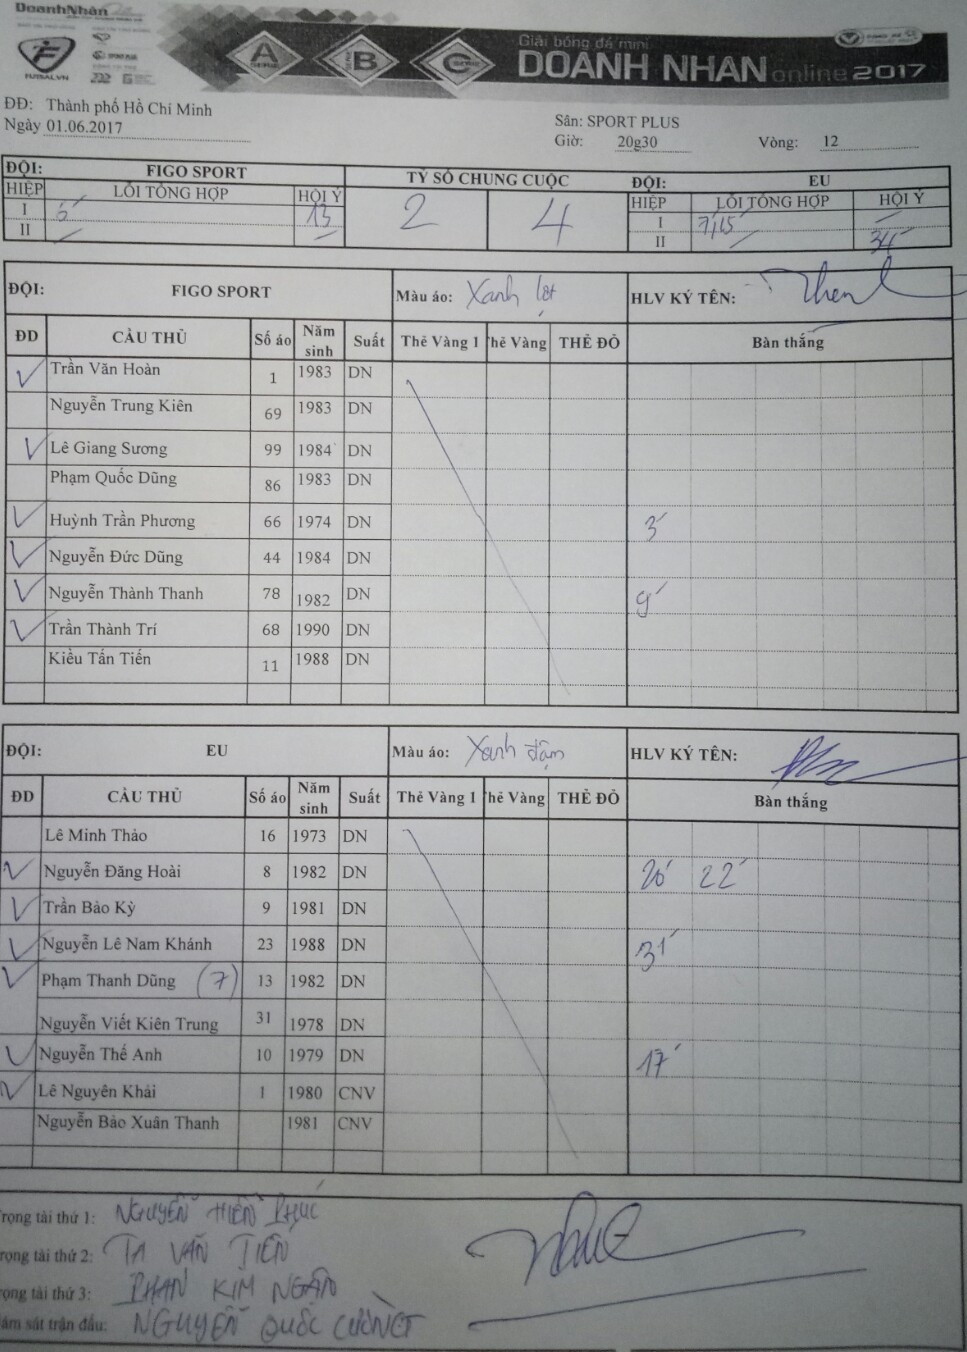 DoanhNhân
FUTSAL.VN
A
B
C
Giải bóng đá mini
DOANH NHÂN online 2017
ĐĐ: Thành phố Hồ Chí Minh
Ngày 01.06.2017
Sân: SPORT PLUS
Giờ: 20g30 Vòng: 12
ĐỘI: FIGO SPORT TỶ SỐ CHUNG CUỘC ĐỘI: EU
HIỆP LỖI TỔNG HỢP HỘI Ý 2 4 HIỆP LỖI TỔNG HỢP HỘI Ý
I 13 I
II II 34'
ĐỘI: FIGO SPORT Màu áo: Xanh lợt HLV KÝ TÊN:
ĐD CẦU THỦ Số áo Năm sinh Suất Thẻ Vàng 1 Thẻ Vàng THẺ ĐỎ Bàn thắng
Trần Văn Hoàn 1 1983 DN
Nguyễn Trung Kiên 69 1983 DN
Lê Giang Sương 99 1984 DN
Phạm Quốc Dũng 86 1983 DN
Huỳnh Trần Phương 66 1974 DN 3'
Nguyễn Đức Dũng 44 1984 DN
Nguyễn Thành Thanh 78 1982 DN 9'
Trần Thành Trí 68 1990 DN
Kiều Tấn Tiến 11 1988 DN
ĐỘI: EU Màu áo: Xanh đậm HLV KÝ TÊN:
ĐD CẦU THỦ Số áo Năm sinh Suất Thẻ Vàng 1 Thẻ Vàng THẺ ĐỎ Bàn thắng
Lê Minh Thảo 16 1973 DN
Nguyễn Đăng Hoài 8 1982 DN 20' 22'
Trần Bảo Kỳ 9 1981 DN
Nguyễn Lê Nam Khánh 23 1988 DN 31'
Phạm Thanh Dũng (7) 13 1982 DN
Nguyễn Viết Kiên Trung 31 1978 DN
Nguyễn Thế Anh 10 1979 DN 17'
Lê Nguyên Khải 1 1980 CNV
Nguyễn Bảo Xuân Thanh 1981 CNV
rọng tài thứ 1: NGUYỄN HIỀN PHÚC
rọng tài thứ 2: TẠ VĂN TIẾN
rọng tài thứ 3: PHAN KIM NGÂN
ám sát trận đấu: NGUYỄN QUỐC CƯỜNG